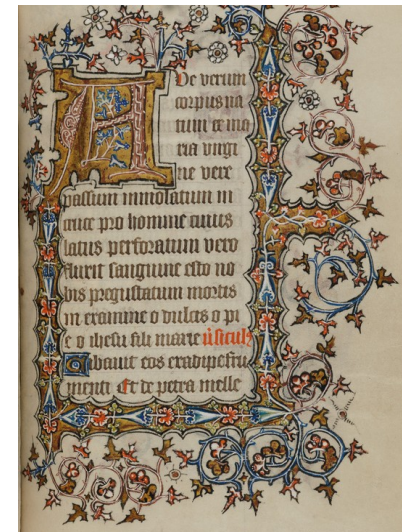 A De verum
corpus na
tum ex ma
ria virgi
ne vere
passum immolatum in
cruce pro homine cuius
latus perforatum vero
fluxit sanguine esto no
bis pregustatum mortis
in examine o dulcis o pi
e o ihesu fili marie
Cibauit eos ex adipe fru
menti Et de petra melle